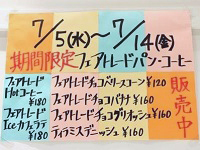 7/5(水)〜7/14(金)
期間限定フェアトレードパン・コーヒー
フェアトレード
Hotコーヒー
¥180
フェアトレード
Iceカフェラテ
¥180
フェアトレードチョコベリースコーン¥120
フェアトレードチョコバナナ ¥160
フェアトレードチョコグリオッシュ¥160
ティラミスデニッシュ ¥160
販売中